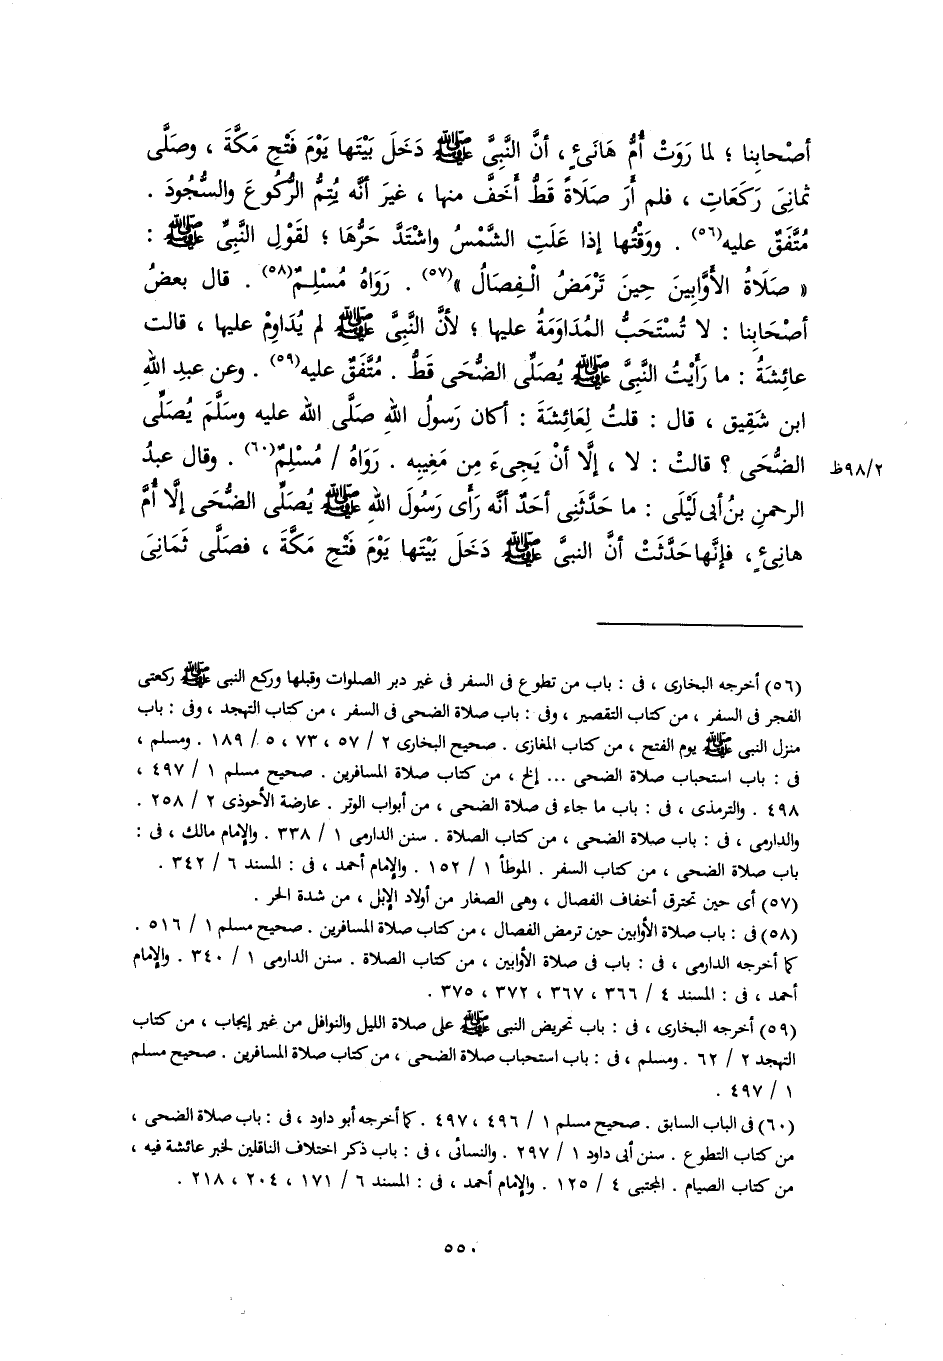 أصْحابِنا ؛ لما رَوَتْ أُمُّ هَانىءٍ ، أنَّ النَّبِىَّ ﷺ دَخَلَ بَيْتَها يَوْمَ فَتْحِ مَكَّةَ ، وصَلَّى
ثمانِىَ رَكَعَاتٍ ، فلم أَرَ صَلَاةً قَطُّ أَخَفَّ منها ، غيرَ أنَّه يُتِمُّ الرُّكُوعَ والسُّجُودَ .
مُتَّفَقٌ عليه(٥٦) . ووَقْتُها إذا عَلَتِ الشَّمْسُ واشْتَدَّ حَرُّهَا ؛ لقَوْلِ النَّبِىِّ ﷺ :
« صَلَاةُ الأَوَّابِينَ حِينَ تَرْمَضُ الْفِصَالُ »(٥٧) . رَوَاهُ مُسْلِمٌ(٥٨) . قال بعضُ
أصْحَابِنا : لا تُسْتَحَبُّ المُدَاوَمَةُ عليها ؛ لأنَّ النَّبِىَّ ﷺ لم يُدَاوِمْ عليها ، قالت
عائِشَةُ : ما رَأَيْتُ النَّبِىَّ ﷺ يُصَلِّى الضُّحَى قَطُّ . مُتَّفَقٌ عليه(٥٩) . وعن عبدِ اللهِ
ابن شَقِيق ، قال : قلتُ لِعَائِشَةَ : أكان رَسولُ اللهِ صَلَّى الله عليه وسَلَّمَ يُصَلِّى
الضُّحَى ؟ قالتْ : لا ، إلَّا أنْ يَجِىءَ مِن مَغِيبِه . رَوَاهُ / مُسْلِمٌ(٦٠) . وقال عبدُ ٩٨/٢ظ
الرحمنِ بنُ أبى لَيْلَى : ما حَدَّثَنِى أحَدٌ أنَّه رَأَى رَسُولَ اللهِ ﷺ يُصَلِّى الضُّحَى إلَّا أُمَّ
هانِىءٍ ، فإنَّها حَدَّثَتْ أنَّ النبىَّ ﷺ دَخَلَ بَيْتَها يَوْمَ فَتْحِ مَكَّةَ ، فصَلَّى ثَمَانِىَ
(٥٦) أخرجه البخارى ، فى : باب من تطوع فى السفر فى غير دبر الصلوات وقبلها وركع النبى ﷺ ركعتى
الفجر فى السفر ، من كتاب التقصير ، وفى : باب صلاة الضحى فى السفر ، من كتاب التهجد ، وفى : باب
منزل النبى ﷺ يوم الفتح ، من كتاب المغازى . صحيح البخارى ٢ / ٥٧ ، ٧٣ ، ٥ / ١٨٩ . ومسلم ،
فى : باب استحباب صلاة الضحى ... إلخ ، من كتاب صلاة المسافرين . صحيح مسلم ١ / ٤٩٧ ،
٤٩٨ . والترمذى ، فى : باب ما جاء فى صلاة الضحى ، من أبواب الوتر . عارضة الأحوذى ٢ / ٢٥٨ .
والدارمى ، فى : باب صلاة الضحى ، من كتاب الصلاة . سنن الدارمى ١ / ٣٣٨ . والإمام مالك ، فى :
باب صلاة الضحى ، من كتاب السفر . الموطأ ١ / ١٥٢ . والإمام أحمد ، فى : المسند ٦ / ٣٤٢ .
(٥٧) أى حين تحترق أخفاف الفصال ، وهى الصغار من أولاد الإبل ، من شدة الحر .
(٥٨) فى : باب صلاة الأوابين حين ترمض الفصال ، من كتاب صلاة المسافرين . صحيح مسلم ١ / ٥١٦ .
كما أخرجه الدارمى ، فى : باب فى صلاة الأوابين ، من كتاب الصلاة . سنن الدارمى ١ / ٣٤٠ . والإمام
أحمد ، فى : المسند ٤ / ٣٦٦ ، ٣٦٧ ، ٣٧٢ ، ٣٧٥ .
(٥٩) أخرجه البخارى ، فى : باب تحريض النبى ﷺ على صلاة الليل والنوافل من غير إيجاب ، من كتاب
التهجد ٢ / ٦٢ . ومسلم ، فى : باب استحباب صلاة الضحى ، من كتاب صلاة المسافرين . صحيح مسلم
١ / ٤٩٧ .
(٦٠) فى الباب السابق . صحيح مسلم ١ / ٤٩٦ ، ٤٩٧ . كما أخرجه أبو داود ، فى : باب صلاة الضحى ،
من كتاب التطوع . سنن أبى داود ١ / ٢٩٧ . والنسائى ، فى : باب ذكر اختلاف الناقلين لخبر عائشة فيه ،
من كتاب الصيام . المجتبى ٤ / ١٢٥ . والإمام أحمد ، فى : المسند ٦ / ١٧١ ، ٢٠٤ ، ٢١٨ .
٥٥٠